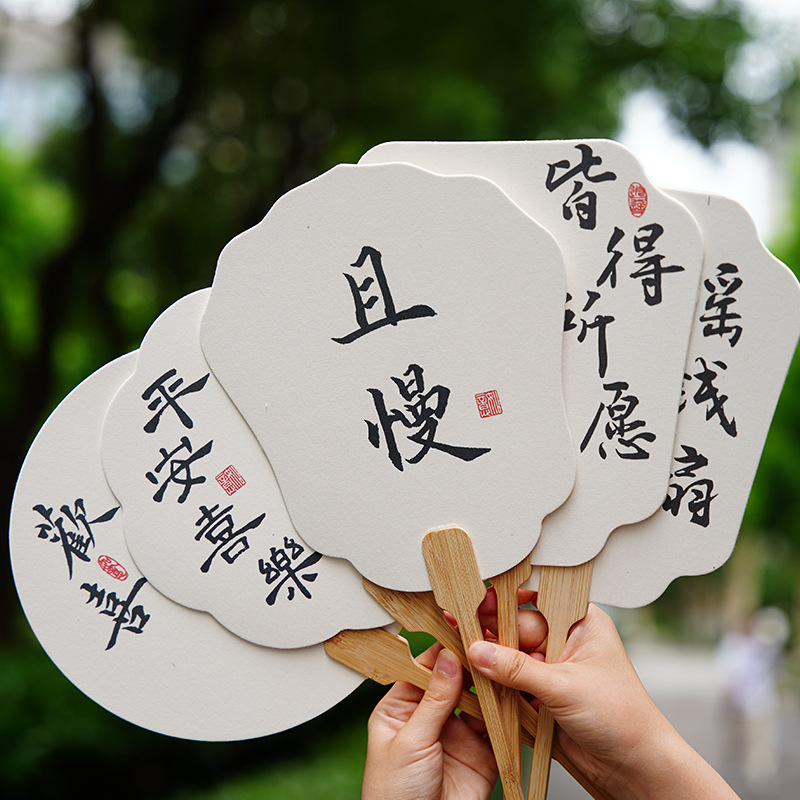 歡喜
平安喜樂
且慢
皆得所愿
浅扇